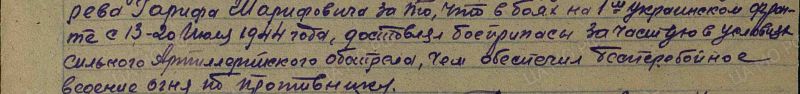 рева Гарифа Шарифовича за то, что в боях на 1ом украинском фрон-
те с 13-20 июля 1944 года, доставлял боеприпасы зачастую в условиях
сильного Артиллерийского обстрела, чем обеспечил бесперебойное
ведение огня по противнику.